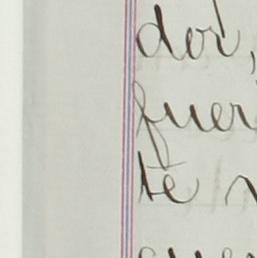 dor,
fuer
te